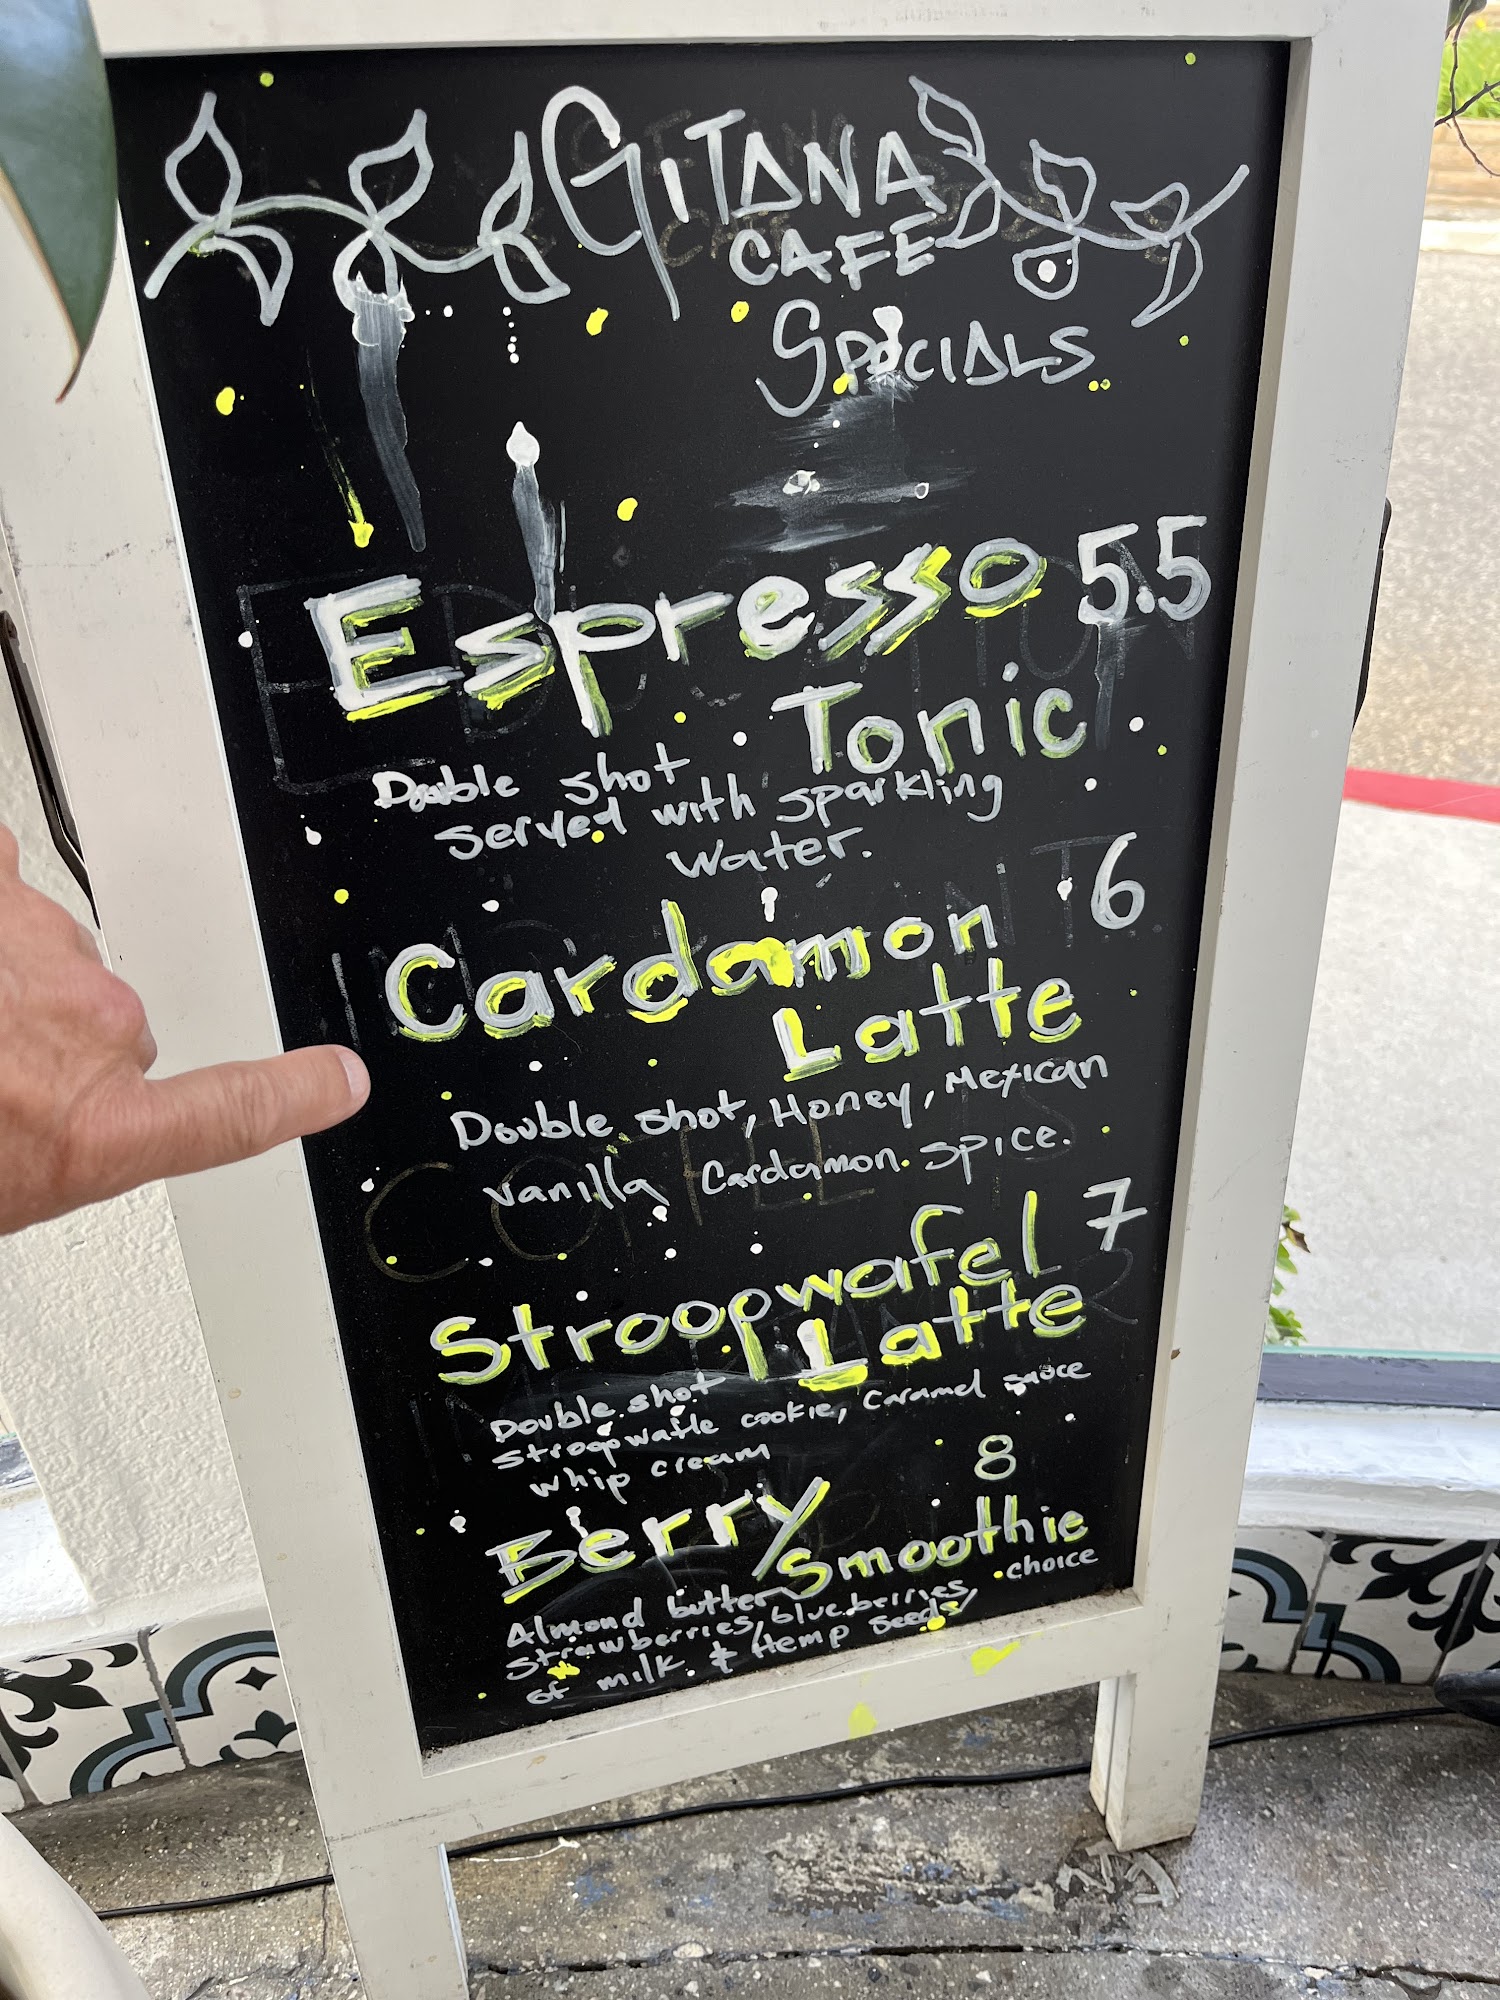 GITANA
CAFE
SPECIALS
Espresso 5.5
Tonic
Double shot
served with sparkling
water.
Cardamon 6
Latte
Double shot, Honey, Mexican
vanilla Cardamon spice.
Stroopwafel 7
Latte
Double shot
stroopwafle cookie, caramel sauce
whip cream
8
Berry
Smoothie
Almond butter
strawberries/blueberries, choice
of milk & Hemp seeds